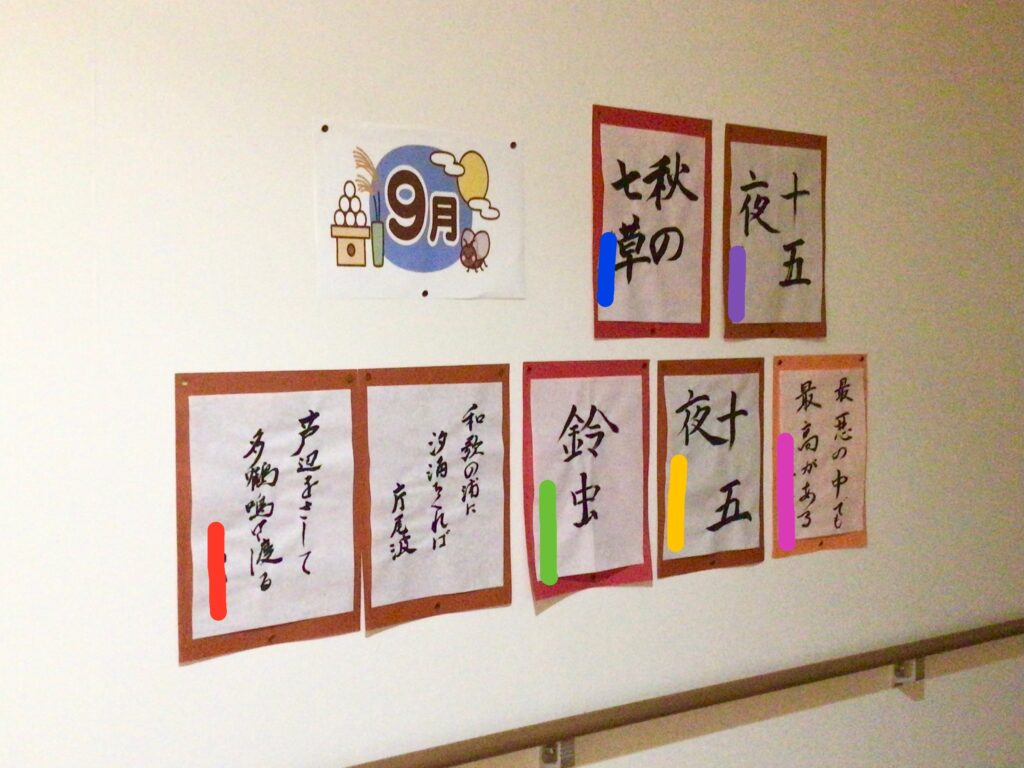 9月
秋の
七草
十五
夜
和歌の浦に
汐満ちくれば
片尾波
芦辺をさして
多鶴鳴き渡る
鈴虫
十五
夜
最悪の中でも
最高がある